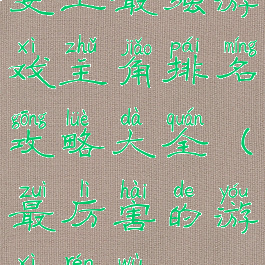 史上最强游
xì zhǔ jiǎo pái míng
戏主角排名
gōng lüè dà quán
攻略大全（
zuì lì hài de yóu
最厉害的游
xì rén wù